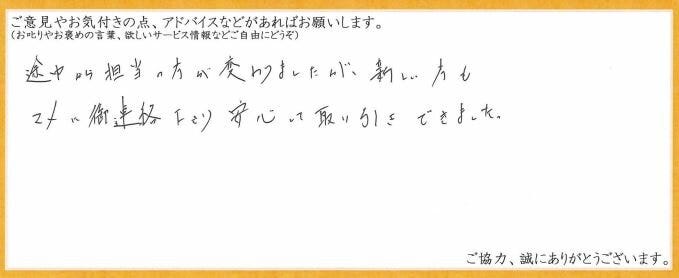 ご意見やお気付きの点、アドバイスなどがあればお願いします。
(お叱りやお褒めの言葉、欲しいサービス情報などご自由にどうぞ)
途中から担当の方が変わりましたが、新しい方も
マメに御連絡下さり安心して取り引きできました。
ご協力、誠にありがとうございます。